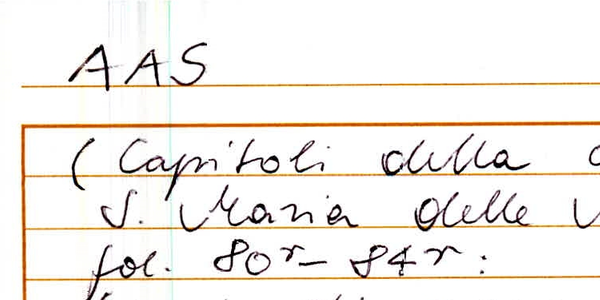 AAS
(Capitoli della
S. Maria delle
fol. 80r – 84r: